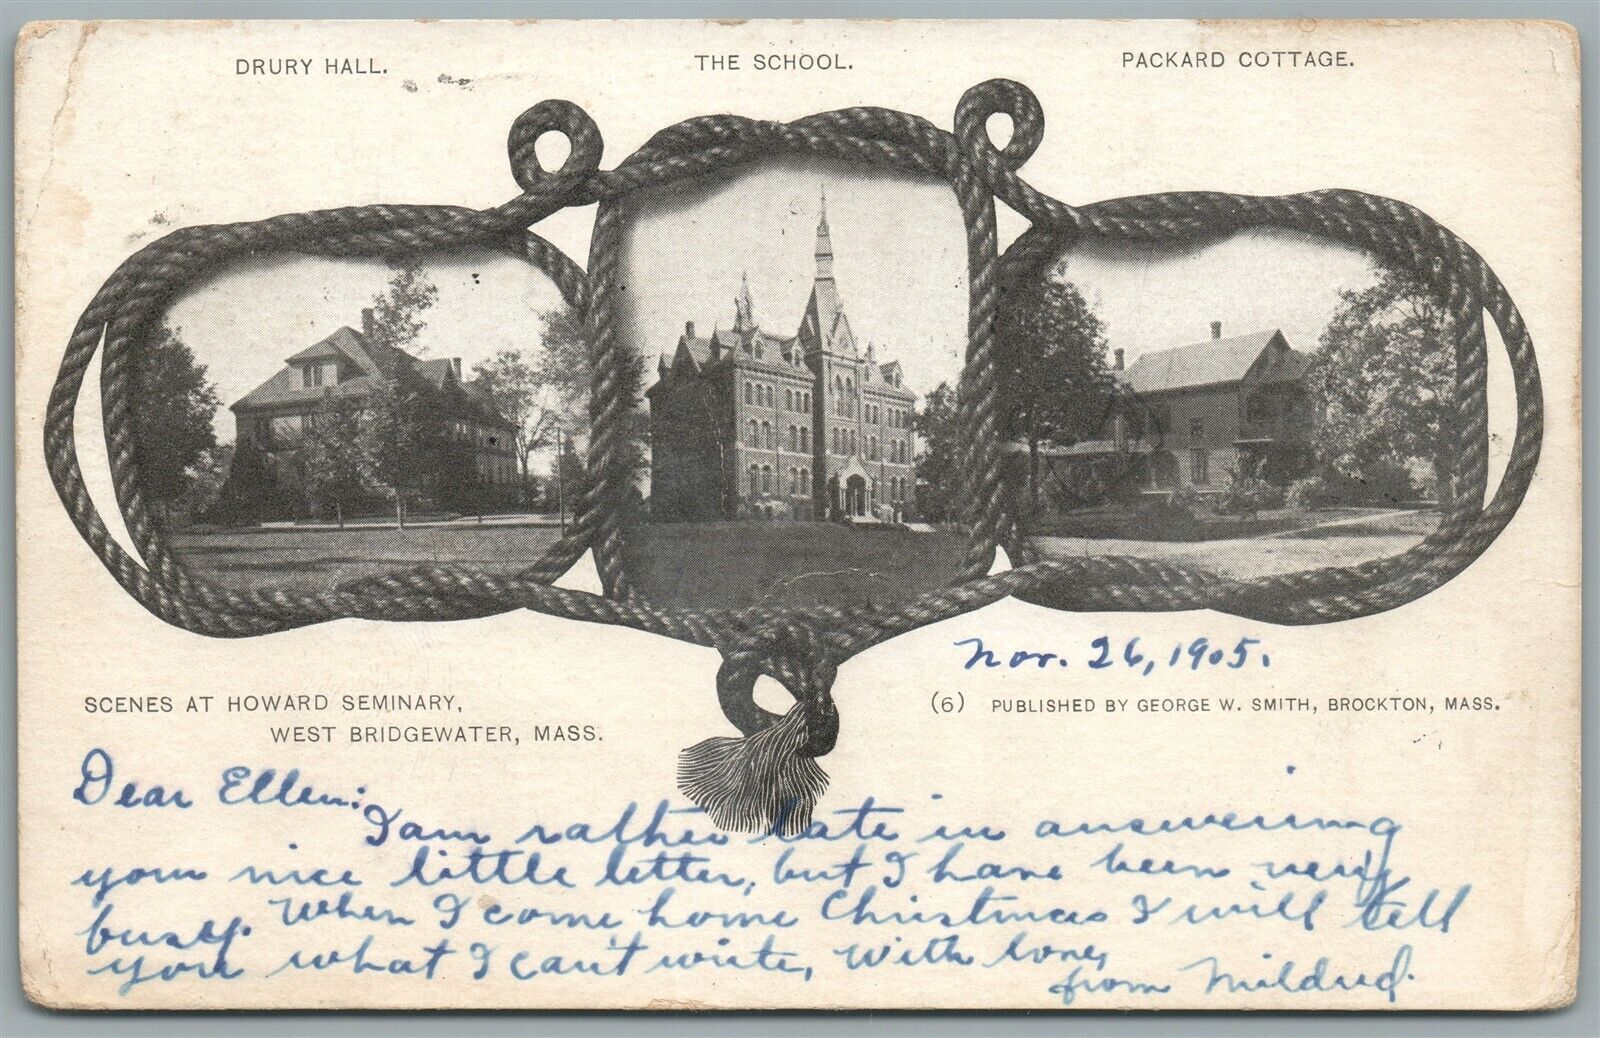 DRURY HALL.
THE SCHOOL.
PACKARD COTTAGE.
Nov. 26, 1905.
SCENES AT HOWARD SEMINARY,
WEST BRIDGEWATER, MASS.
(6) PUBLISHED BY GEORGE W. SMITH, BROCKTON, MASS.
Dear Ellen:
I am rather late in answering
your nice little letter, but I have been very
busy. When I come home Christmas I will tell
you what I can't write, With love,
from Mildred.